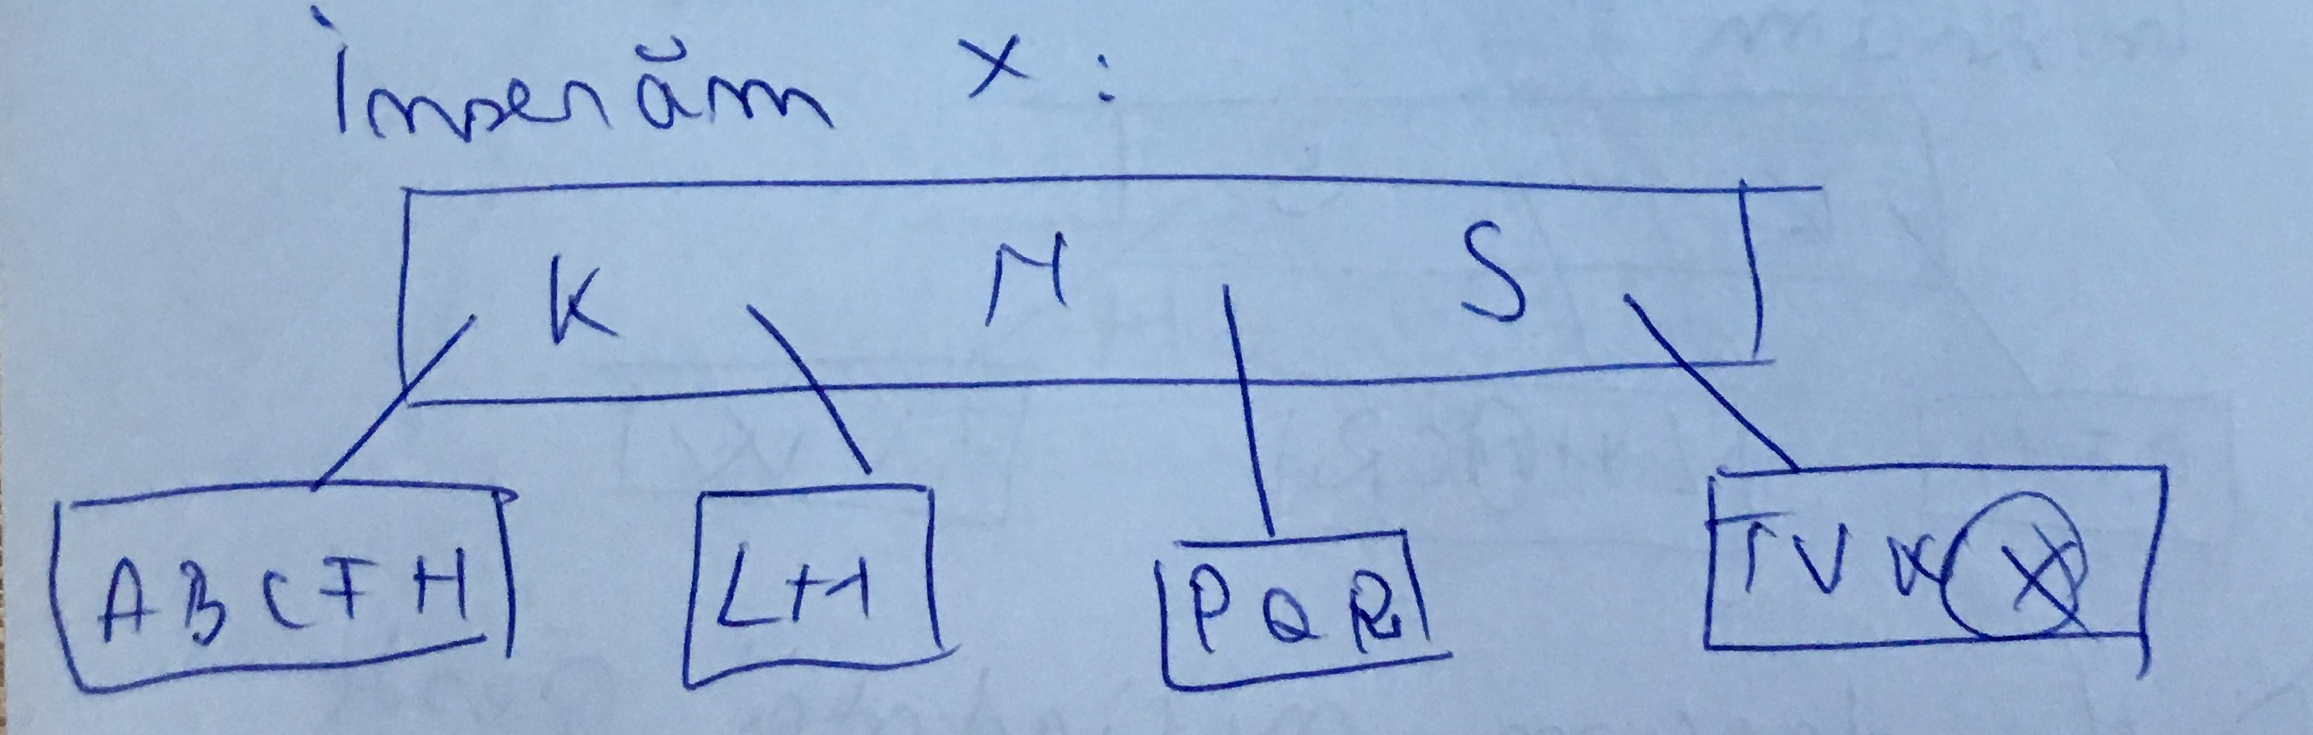 Inserăm X :
K N S
A B C F H L M P Q R T V W X